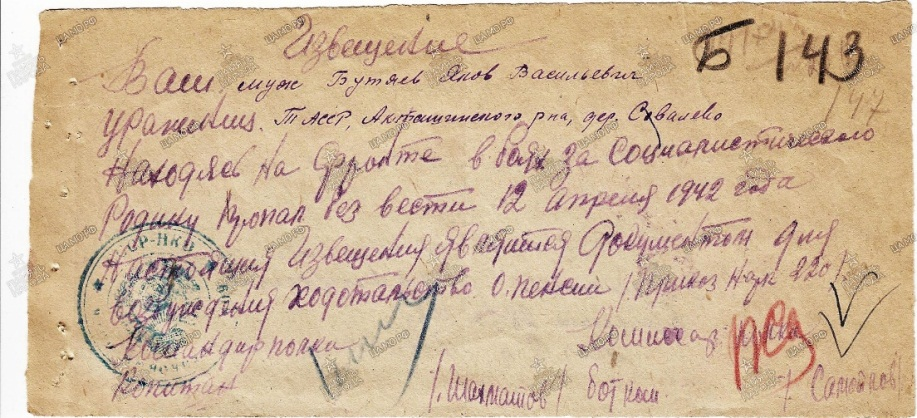 Извещение
Б 143
147
Ваш муж Бутяев Яков Васильевич
Уроженец ТАССР, Актанышского р-на, дер.
Находясь на фронте в боях за Социалистическую
Родину пропал без вести 12 апреля 1942 года
Настоящия Извещения является Документом для
возбуждения ходотальства о пенсии /приказ НКО № 220/
Командир полка Комиссар полка
Капитан /Шахматов/ бат ком /